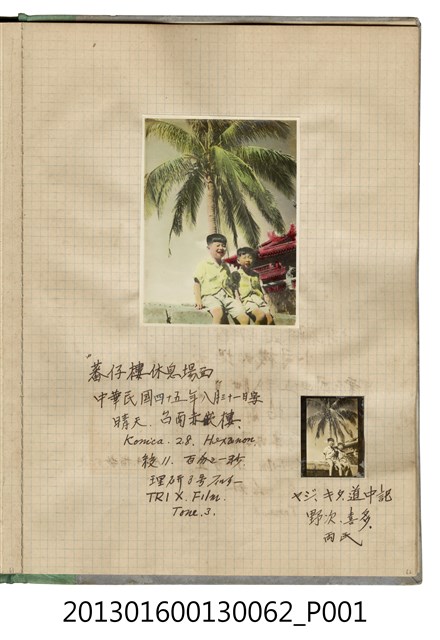 "蕃仔樓休息場面"
中華民國四十五年八月三十一日寫
晴天. 台南赤嵌樓.
Konica. 28. Hexanon.
絞11. 百分之一秒
理研3号
TRI X. Film.
Tone. 3.
ヤジ、キタ道中記
野次.喜多.
両氏
201301600130062_P001